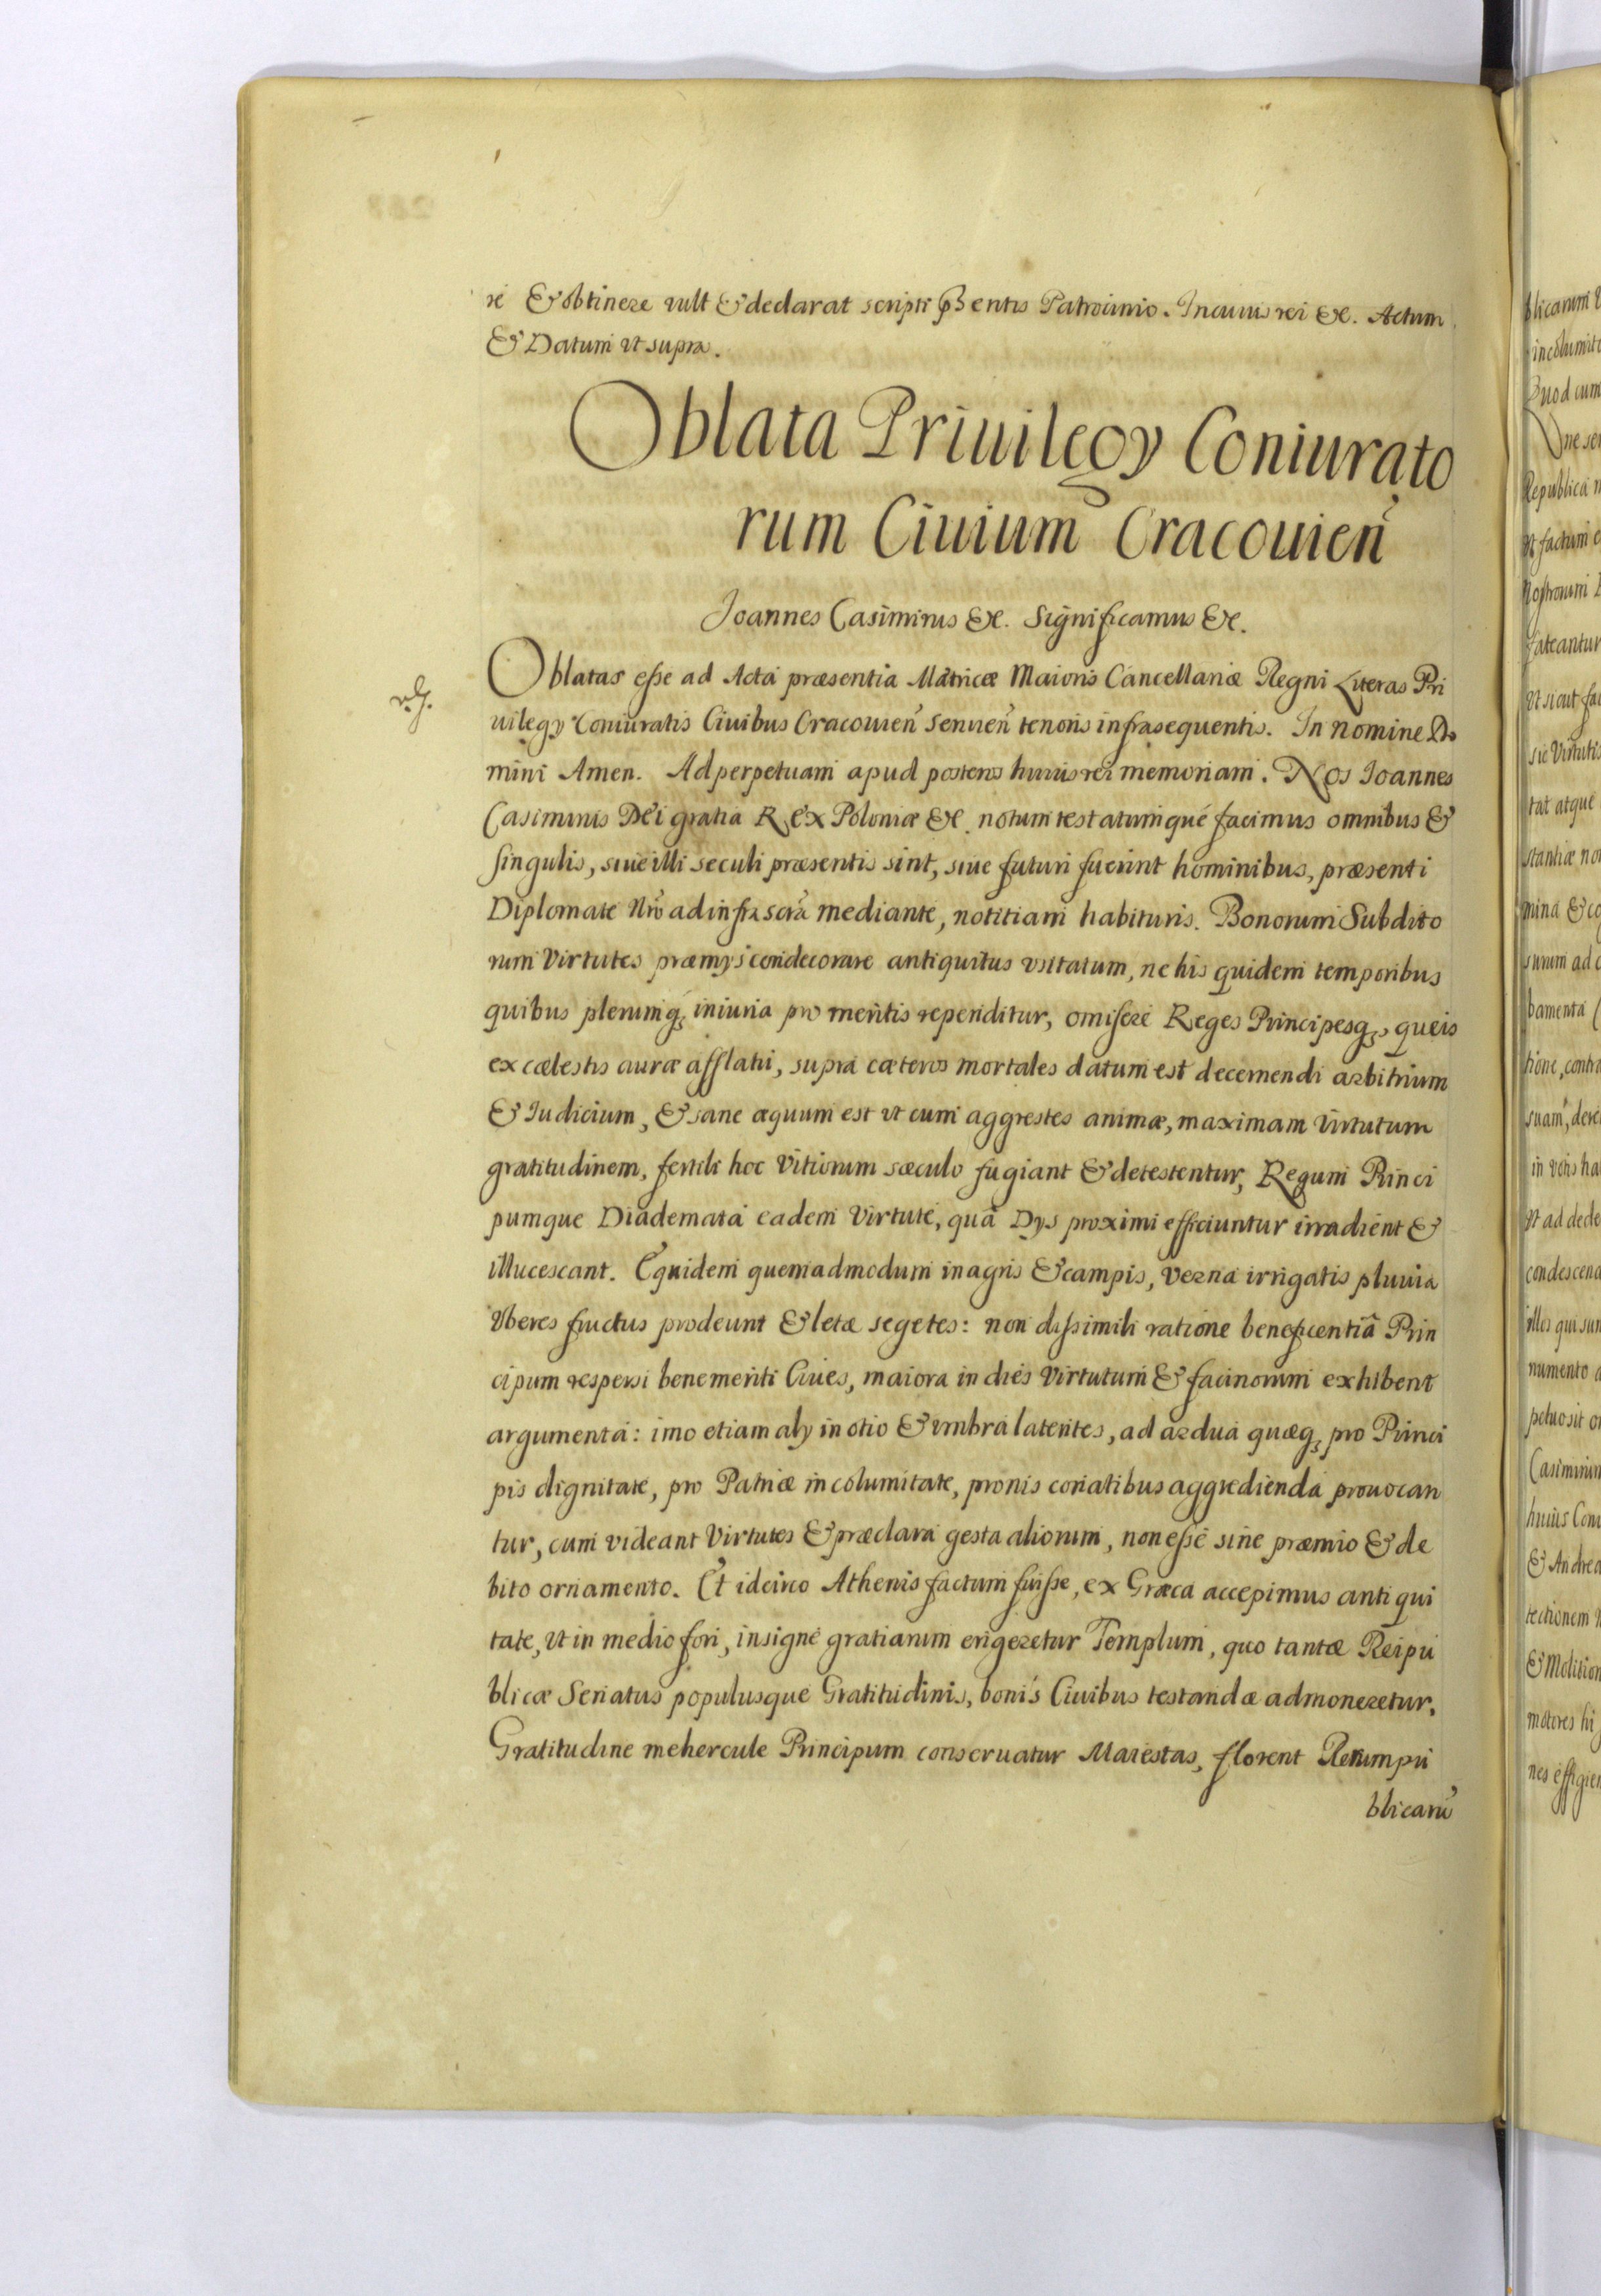 re & obtinere vult & declarat scripti pßentis Patrocinio. In cuius rei &c. Actum
& Datum vt supra.
Oblata Priuilegy Coniurato
rum Ciuium Cracouien
Joannes Casimirus &c. Significamus &c.
Oblatas esse ad Acta præsentia Matricæ Maioris Cancellariæ Regni Literas Pri
uilegy Coniuratis Ciuibus Cracouien seruien tenoris infrasequentis. In Nomine Do
mini Amen. Ad perpetuam apud posteros huius rei memoriam. Nos Joannes
Casimirus Dei gratia Rex Poloniæ &c. notum testatumque facimus omnibus &
singulis, siue illi seculi præsentis sint, siue futuri fuerint hominibus, præsenti
Diplomate Nrõ ad infra scrã mediante, notitiam habituris. Bonorum Subdito
rum Virtutes præmys condecorare antiquitus vsitatum, ne his quidem temporibus
quibus plerumq; iniuria pro meritis rependitur, omisere Reges Principesq;, queis
ex cælestis auræ afflatu, supra cæteros mortales datum est decernendi arbitrium
& Iudicium, & sane æquum est vt cum aggrestes animæ, maximam Virtutum
gratitudinem, fertili hoc Vitiorum sæculo fugiant & detestentur, Regum Princi
pumque Diademata eadem Virtute, quâ Dys proximi efficiuntur irradient &
illucescant. Equidem quemadmodum in agris & campis, verna irrigatis pluuia
Vberes fructus prodeunt & letæ segetes: non dissimili ratione beneficentiâ Prin
cipum respersi benemeriti Ciues, maiora in dies Virtutum & facinorum exhibent
argumenta: imo etiam aly in otio & vmbra latentes, ad ardua quæq; pro Princi
pis dignitate, pro Patriæ incolumitate, pronis conatibus aggredienda prouocan
tur, cum videant Virtutes & præclara gesta aliorum, non esse sine præmio & de
bito ornamento. Et idcirco Athenis factum fuisse, ex Græca accepimus antiqui
tate, vt in medio fori, insigne gratiarum erigeretur Templum, quo tantæ Reipu
blicæ Senatus populusque Gratitudinis, bonis Ciuibus testandæ admoneretur.
Gratitudine mehercule Principum conseruatur Maiestas, florent Rerumpu
blicarũ